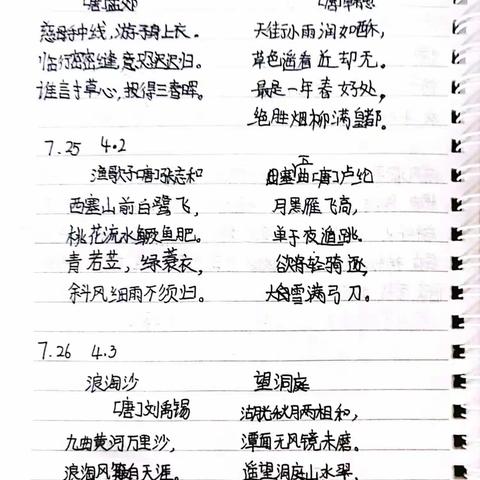 [唐]孟郊
慈母手中线，游子身上衣。
临行密密缝，意恐迟迟归。
谁言寸草心，报得三春晖。
[唐]韩愈
天街小雨润如酥，
草色遥看近却无。
最是一年春好处，
绝胜烟柳满皇都。
7.25 4.2
渔歌子[唐]张志和
西塞山前白鹭飞，
桃花流水鳜鱼肥。
青若笠，绿蓑衣，
斜风细雨不须归。
塞曲[唐]卢纶
月黑雁飞高，
单于夜遁跳。
欲将轻骑逐，
大雪满弓刀。
7.26 4.3
浪淘沙
[唐]刘禹锡
九曲黄河万里沙，
浪淘风簸自天涯。
望洞庭
湖光秋月两相和，
潭面无风镜未磨。
遥望洞庭山水翠，